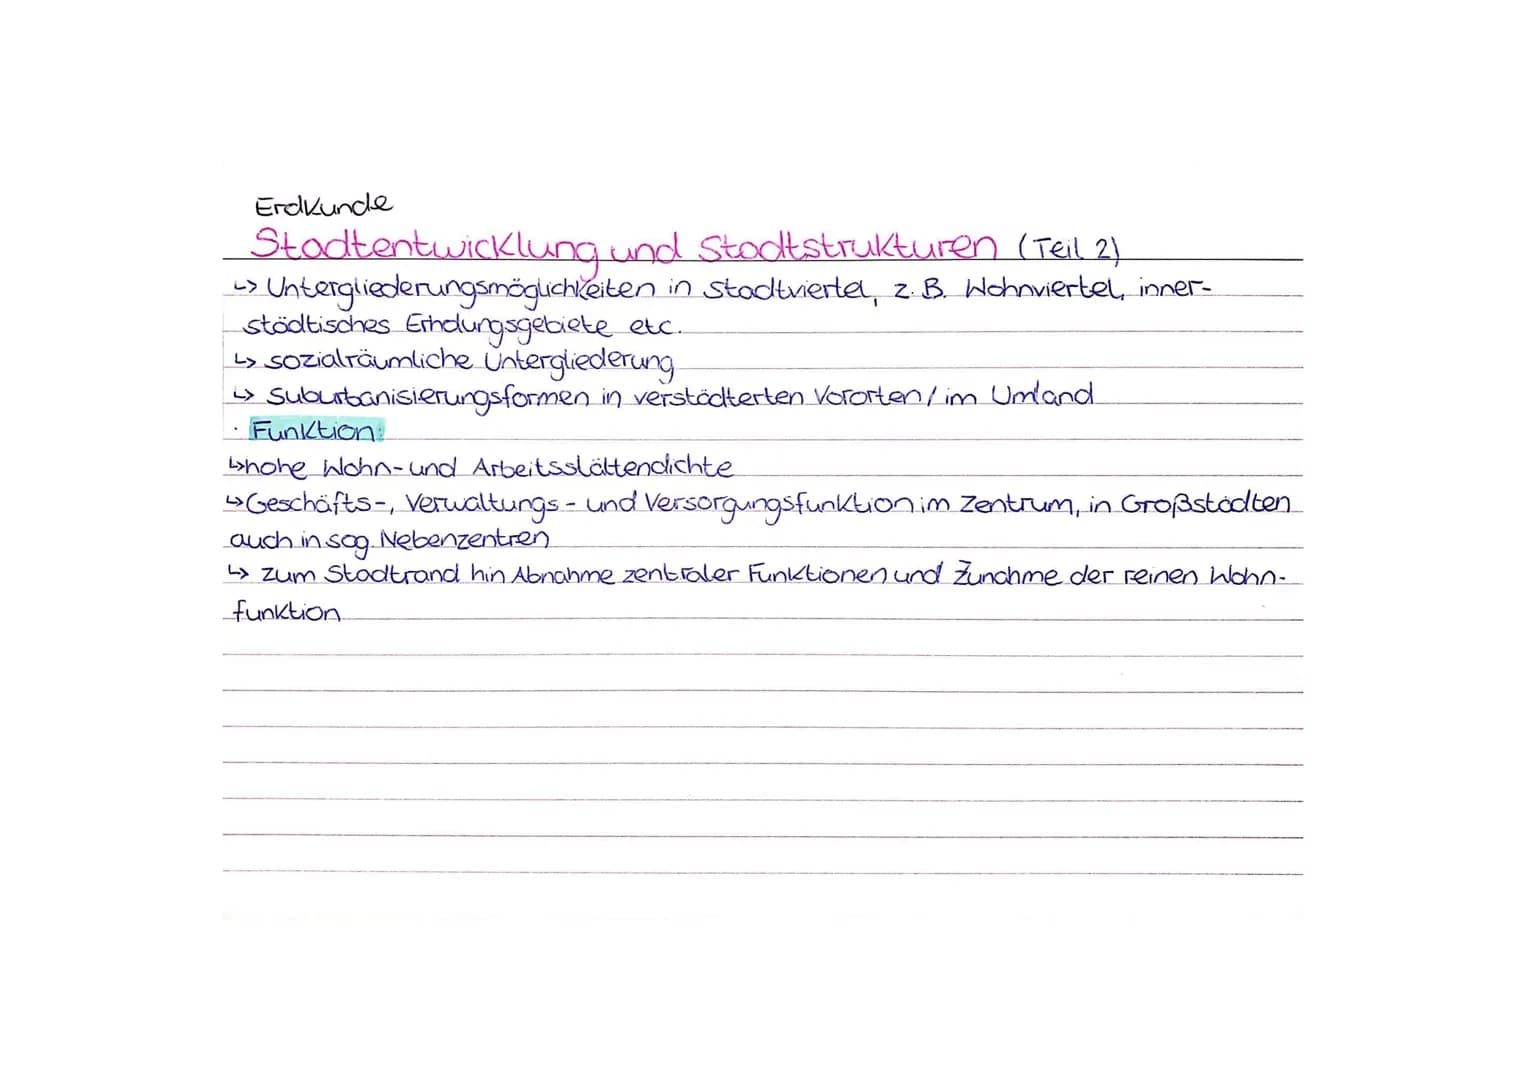 Erdkunde
Stadtentwicklung und Stadtstrukturen (Teil 2)
↳ Untergliederungsmöglichkeiten in Stadtviertel, z. B. Wohnviertel, inner-
städtisches Erholungsgebiete etc.
↳ sozialräumliche Untergliederung
↳ Suburbanisierungsformen in verstädterten Vororten / im Umland
· Funktion:
↳ hohe Wohn- und Arbeitsstättendichte
↳ Geschäfts-, Verwaltungs- und Versorgungsfunktion im Zentrum, in Großstädten
auch in sog. Nebenzentren
↳ zum Stadtrand hin Abnahme zentraler Funktionen und Zunahme der reinen Wohn-
funktion